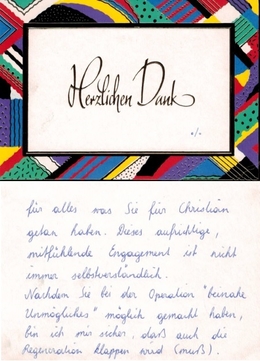 Herzlichen Dank
./.
für alles was Sie für Christian
getan haben. Dieses aufrichtige,
mitfühlende Engagement ist nicht
immer selbstverständlich.
Nachdem Sie bei der Operation "beinahe
Unmögliches" möglich gemacht haben,
bin ich mir sicher, daß auch die
Regeneration klappen wird (muß).